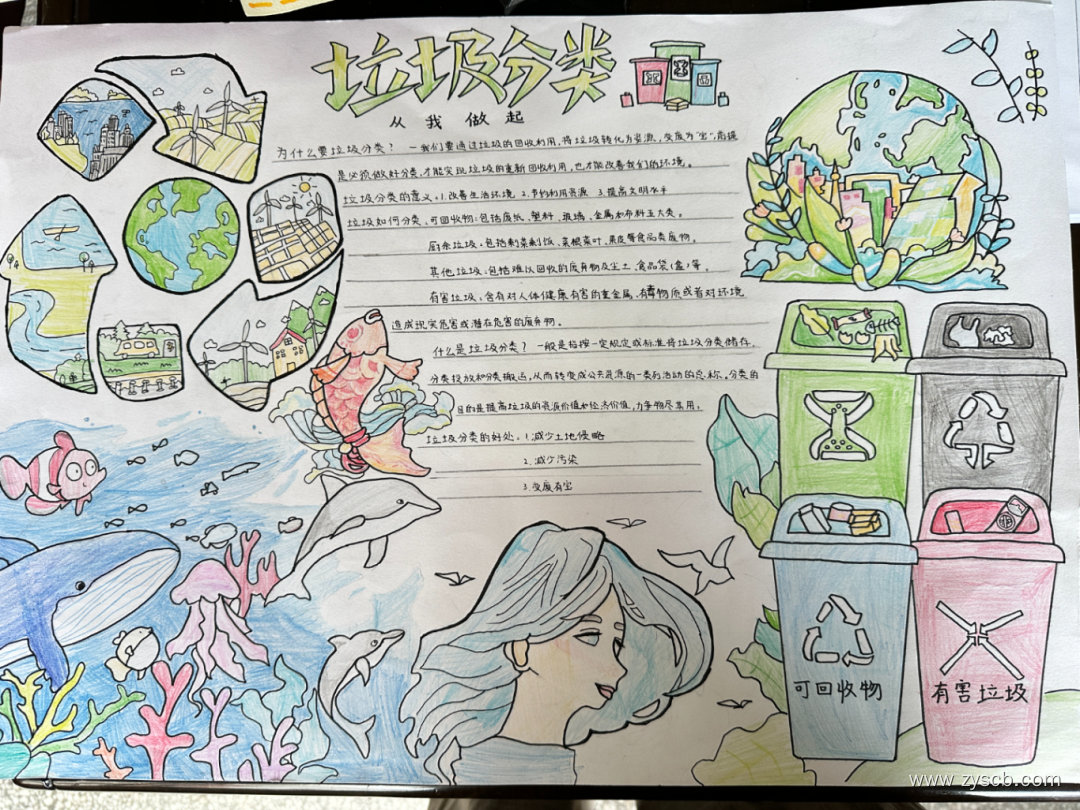 垃圾分类
从我做起
为什么要垃圾分类？一我们要通过垃圾的回收利用，将垃圾转化为资源，变废为"宝"，前提
是必须做好分类，才能实现垃圾的重新回收利用，也才能改善我们的环境。
垃圾分类的意义：1.改善生活环境 2.节约利用资源 3.提高文明水平
垃圾如何分类：可回收物：包括废纸、塑料、玻璃、金属和布料五大类。
厨余垃圾：包括剩菜剩饭、菜根菜叶、果皮等食品类废物。
其他垃圾：包括难以回收的废弃物及尘土、食品袋（盒）等。
有害垃圾：含有对人体健康有害的重金属、有毒物质或者对环境
造成现实危害或潜在危害的废弃物。
什么是垃圾分类？一般是指按一定规定或标准将垃圾分类储存，
分类投放和分类搬运，从而转变成公共资源的一系列活动的总称。分类的
目的是提高垃圾的资源价值和经济价值，力争物尽其用；
垃圾分类的好处：1.减少土地侵略
2.减少污染
3.变废有宝
可回收物
有害垃圾
www.zyscb.com